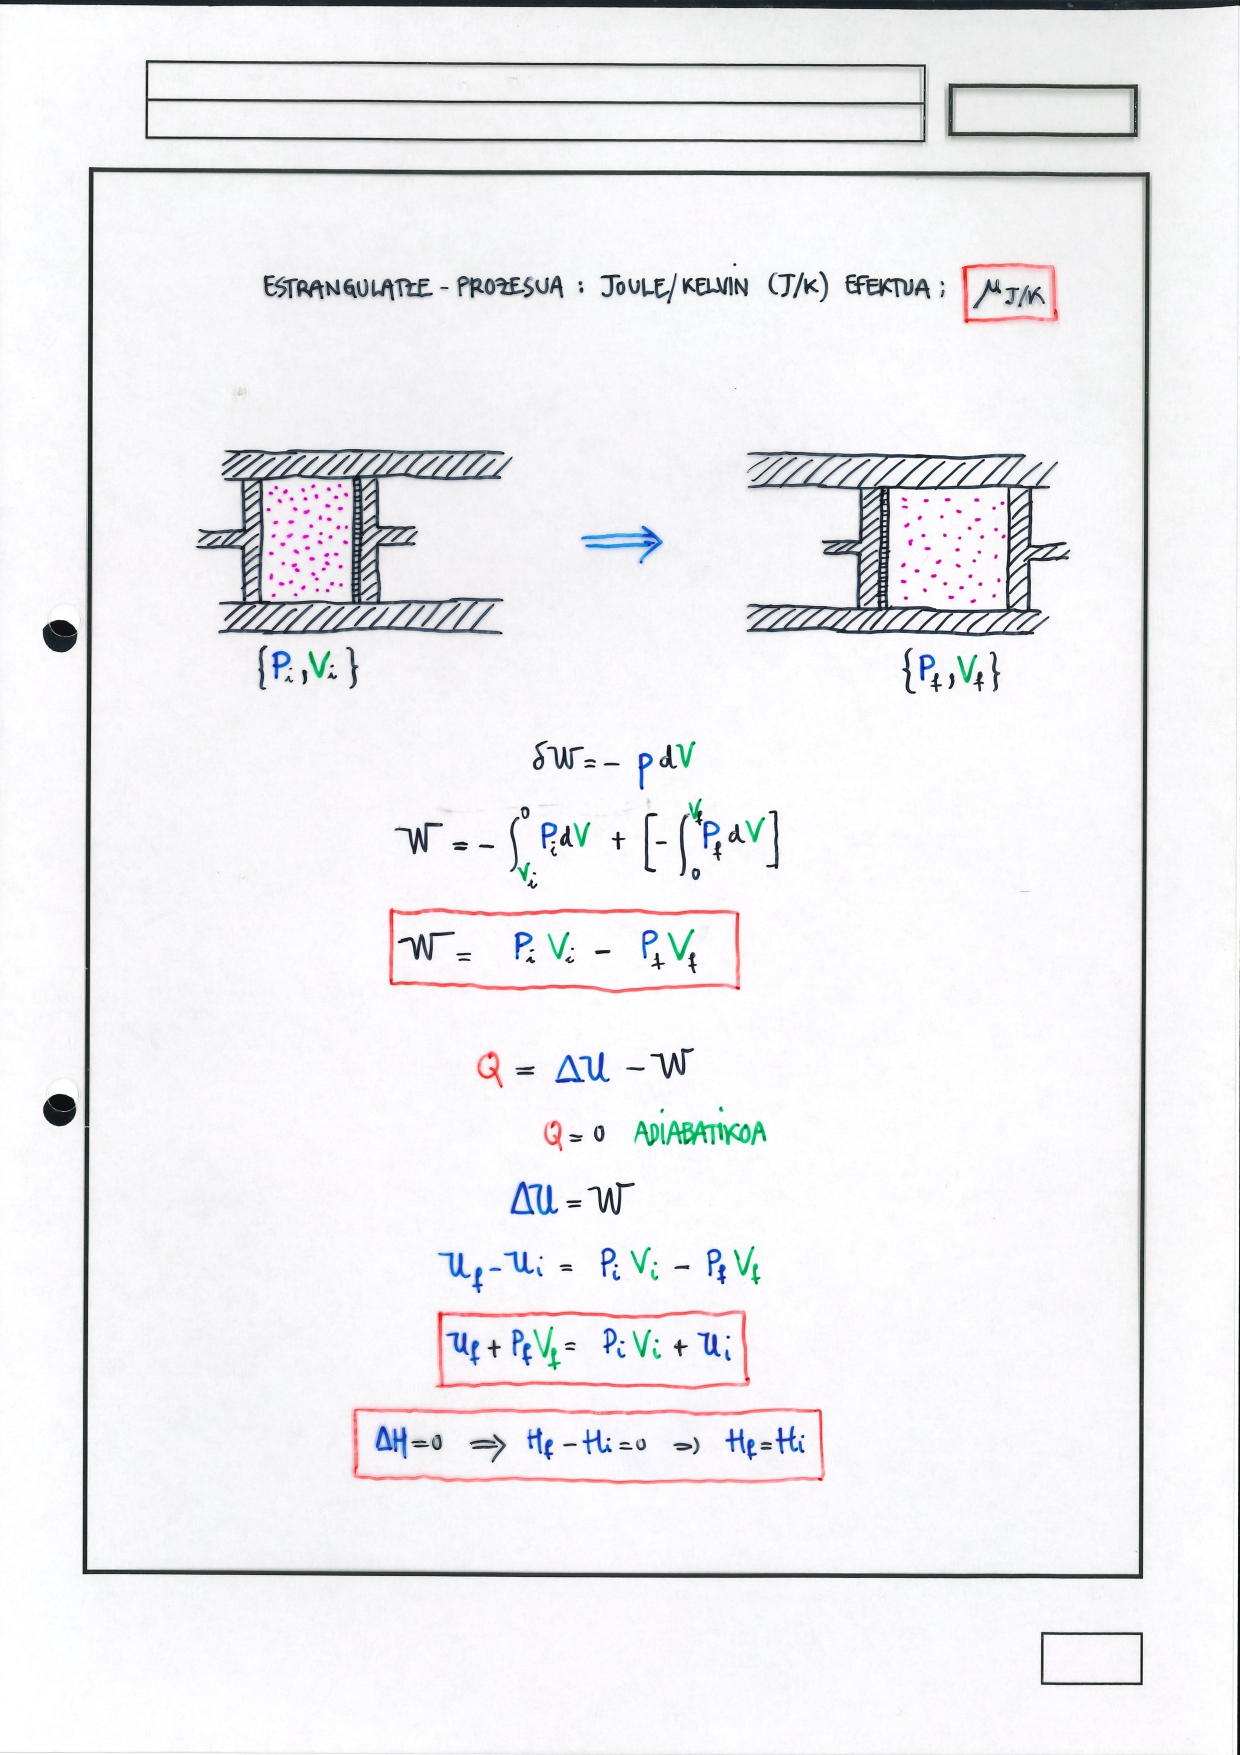 ESTRANGULATZE - PROZESUA : JOULE/KELVIN (J/K) EFEKTUA ; μ_J/K
{P_i, V_i} {P_f, V_f}
δW = - p dV
W = - ∫_{V_i}^{0} P_i dV + [ - ∫_{0}^{V_f} P_f dV ]
W = P_i V_i - P_f V_f
Q = ΔU - W
Q = 0 ADIABATIKOA
ΔU = W
U_f - U_i = P_i V_i - P_f V_f
U_f + P_f V_f = P_i V_i + U_i
ΔH = 0 ⇒ H_f - H_i = 0 ⇒ H_f = H_i